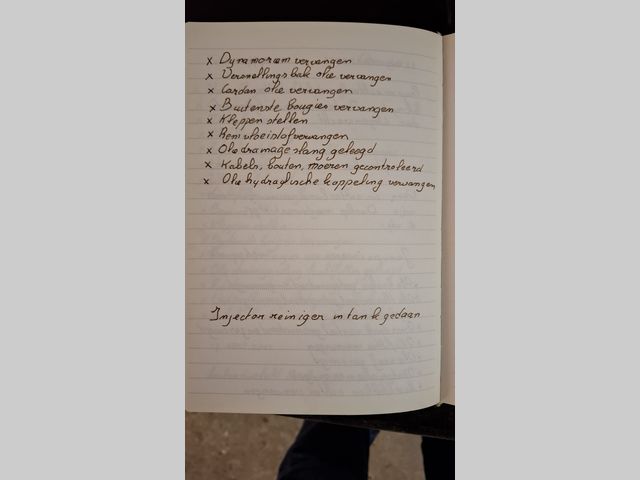 x Dynamoriem vervangen
x Versnellingsbak olie vervangen
x Cardan olie vervangen
x Buitenste Bougies vervangen
x Kleppen stellen
x Remvloeistof vervangen
x Olie drainageslang geleegd
x Kabels, bouten, moeren gecontroleerd
x Olie hydraylische koppeling vervangen
Injector reiniger in tank gedaan